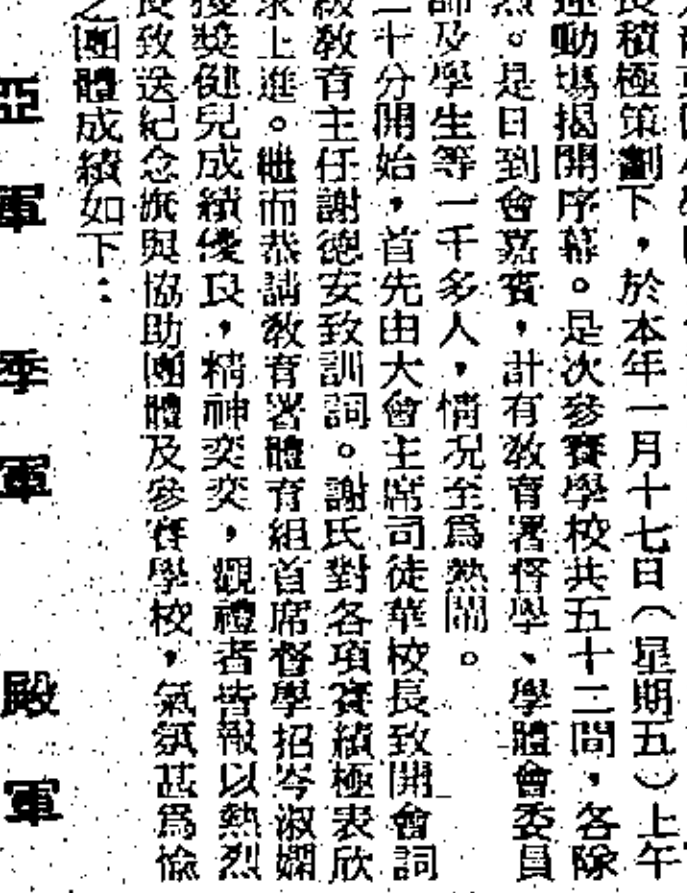 長積極策劃下，於本年一月十七日（星期五）上午
運動場揭開序幕。是次參賽學校共五十二間，各隊
烈。是日到會嘉賓，計有教育署督學、學體會委員
師及學生等一千多人，情况至爲熱鬧。
二十分開始，首先由大會主席司徒華校長致開會詞
級教育主任謝德安致訓詞。謝氏對各項賽績極表欣
求上進。繼而恭請教育署體育組首席督學招岑淑嫻
獲獎健兒成績優良，精神奕奕，觀禮者皆報以熱烈
長致送紀念旗與協助團體及參賽學校，氣氛甚爲愉
之團體成績如下：
亞軍　季軍　殿軍